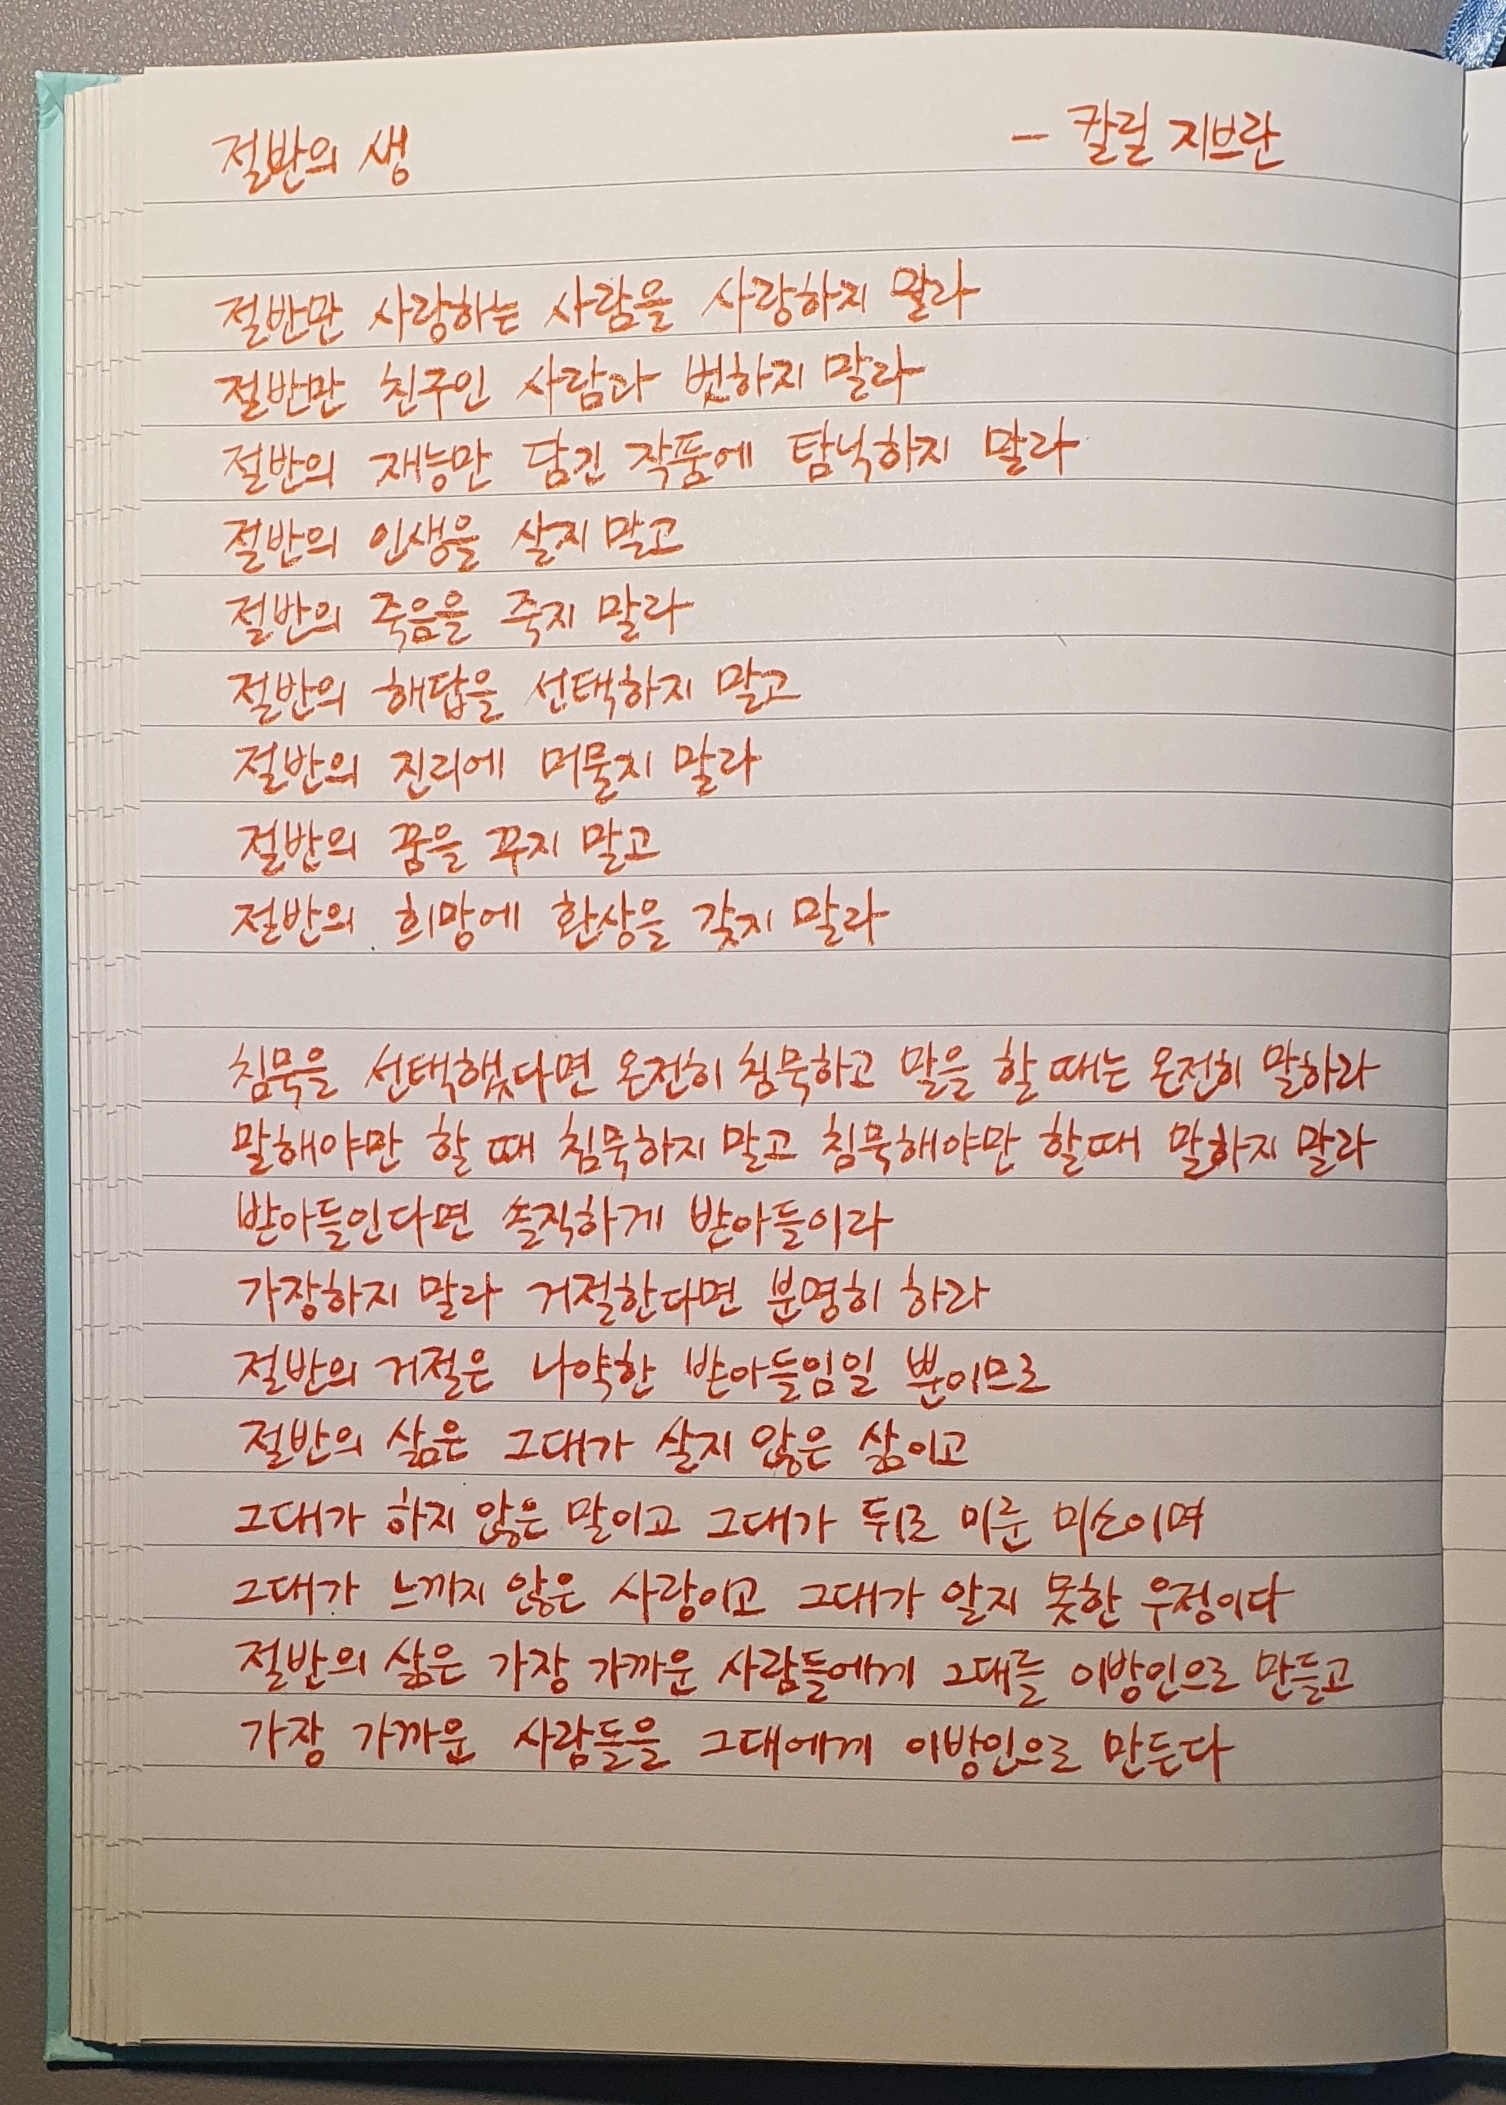 절반의 생 - 칼릴 지브란
절반만 사랑하는 사람을 사랑하지 말라
절반만 친구인 사람과 벗하지 말라
절반의 재능만 담긴 작품에 탐닉하지 말라
절반의 인생을 살지 말고
절반의 죽음을 죽지 말라
절반의 해답을 선택하지 말고
절반의 진리에 머물지 말라
절반의 꿈을 꾸지 말고
절반의 희망에 환상을 갖지 말라
침묵을 선택했다면 온전히 침묵하고 말을 할 때는 온전히 말하라
말해야만 할 때 침묵하지 말고 침묵해야만 할때 말하지 말라
받아들인다면 솔직하게 받아들이라
가장하지 말라 거절한다면 분명히 하라
절반의 거절은 나약한 받아들임일 뿐이므로
절반의 삶은 그대가 살지 않은 삶이고
그대가 하지 않은 말이고 그대가 뒤로 미룬 미소이며
그대가 느끼지 않은 사랑이고 그대가 알지 못한 우정이다
절반의 삶은 가장 가까운 사람들에게 그대를 이방인으로 만들고
가장 가까운 사람들을 그대에게 이방인으로 만든다